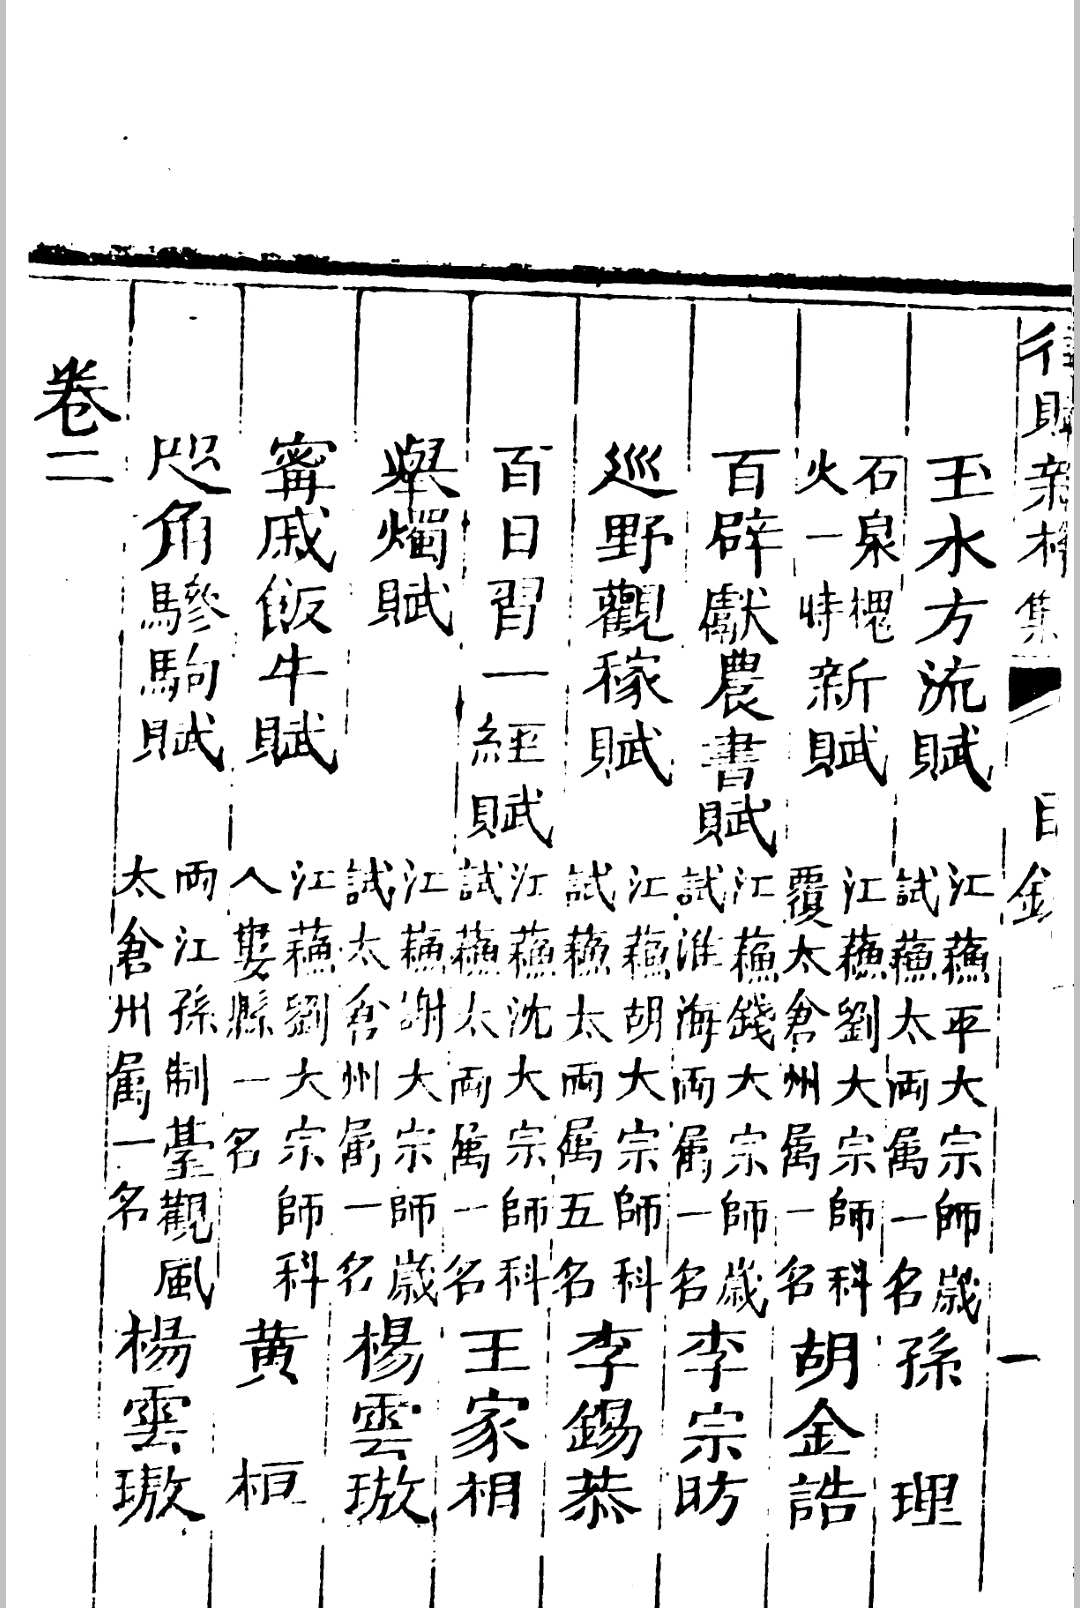 律賦 集 目錄 一
玉水方流賦 江蘇平大宗師歲試蘇太兩屬一名 孫理
石泉槐火一時新賦 江蘇劉大宗師科覆太倉州屬一名 胡金誥
百辟獻農書賦 江蘇錢大宗師歲試淮海兩屬一名 李宗昉
巡野觀稼賦 江蘇胡大宗師科試蘇太兩屬五名 李錫恭
百日習一經賦 江蘇沈大宗師科試蘇太兩屬一名 王家相
舉燭賦 江蘇謝大宗師歲試太倉州屬一名 楊雲璈
甯戚飯牛賦 江蘇劉大宗師科入婁縣一名 黃桓
咫角驂駒賦 兩江孫制臺觀風太倉州屬一名 楊雲璈
卷二